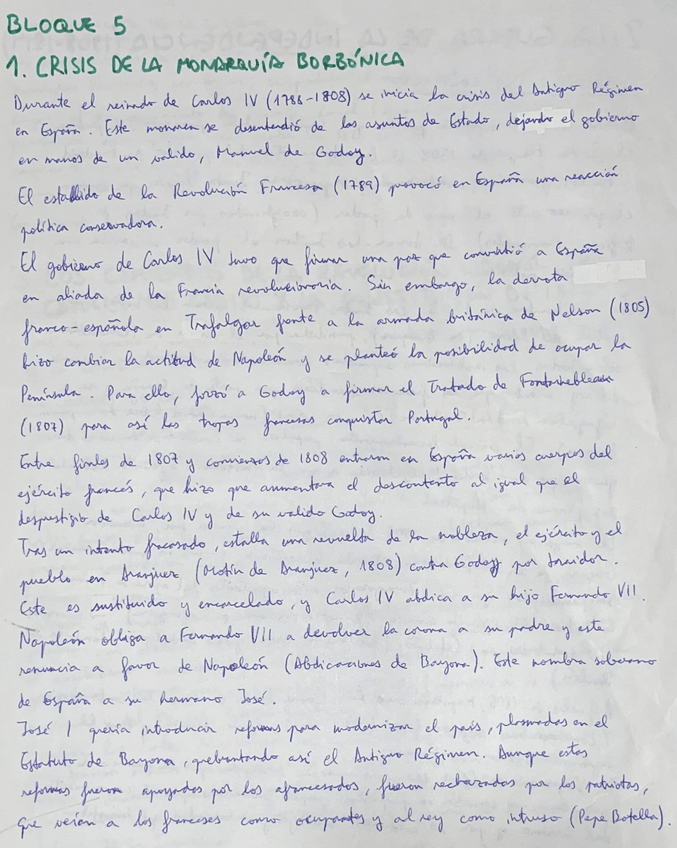 BLOQUE 5
1. CRISIS DE LA MONARQUÍA BORBÓNICA
Durante el reinado de Carlos IV (1788-1808) se inicia la crisis del Antiguo Régimen
en España. Este monarca se desentendió de los asuntos de Estado, dejando el gobierno
en manos de un valido, Manuel de Godoy.
El estallido de la Revolución Francesa (1789) provocó en España una reacción
política conservadora.
El gobierno de Carlos IV tuvo que firmar una paz que convirtió a España
en aliada de la Francia revolucionaria. Sin embargo, la derrota
franco-española en Trafalgar frente a la armada británica de Nelson (1805)
hizo cambiar la actitud de Napoleón y se planteó la posibilidad de ocupar la
Península. Para ello, forzó a Godoy a firmar el Tratado de Fontainebleau
(1807) para así las tropas francesas conquistar Portugal.
Entre finales de 1807 y comienzos de 1808 entraron en España varios cuerpos del
ejército francés, que hizo que aumentara el descontento al igual que el
desprestigio de Carlos IV y de su valido Godoy.
Tras un intento fracasado, estalla una revuelta de la nobleza, el ejército y el
pueblo en Aranjuez (Motín de Aranjuez, 1808) contra Godoy por traidor.
Este es sustituido y encarcelado, y Carlos IV abdica a su hijo Fernando VII.
Napoleón obliga a Fernando VII a devolver la corona a su padre y este
renuncia a favor de Napoleón (Abdicaciones de Bayona). Este nombra soberano
de España a su hermano José.
José I quería introducir reformas para modernizar el país, plasmadas en el
Estatuto de Bayona, quebrantando así el Antiguo Régimen. Aunque estas
reformas fueron apoyadas por los afrancesados, fueron rechazadas por los patriotas,
que veían a los franceses como ocupantes y al rey como intruso (Pepe Botella).